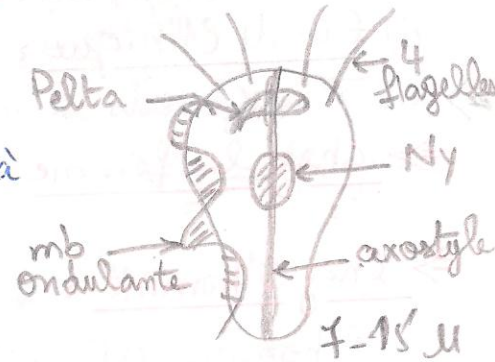 Pelta
4
flagelles
à
Ny
mb
ondulante
axostyle
7-15 µ